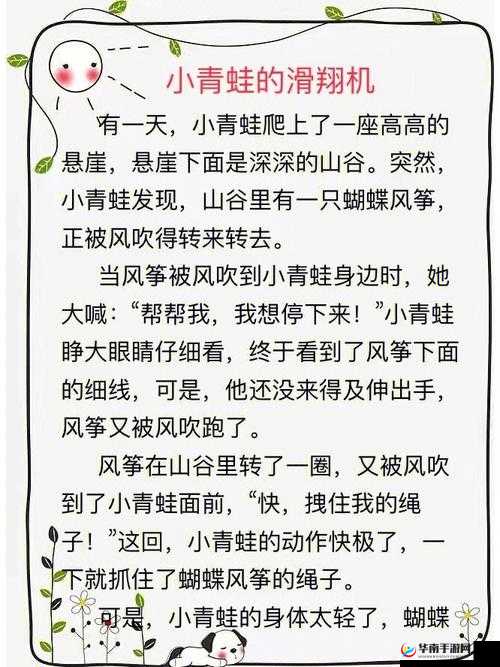 小青蛙的滑翔机
有一天，小青蛙爬上了一座高高的
悬崖，悬崖下面是深深的山谷。突然，
小青蛙发现，山谷里有一只蝴蝶风筝，
正被风吹得转来转去。
当风筝被风吹到小青蛙身边时，她
大喊：“帮帮我，我想停下来！”小青蛙
睁大眼睛仔细看，终于看到了风筝下面
的细线，可是，他还没来得及伸出手，
风筝又被风吹跑了。
风筝在山谷里转了一圈，又被风吹
到了小青蛙面前，“快，拽住我的绳
子！”这回，小青蛙的动作快极了，一
下就抓住了蝴蝶风筝的绳子。
可是，小青蛙的身体太轻了，蝴蝶
华南手游网